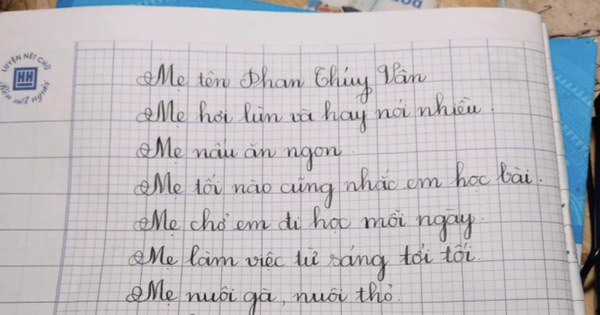 LUYỆN NÉT CHỮ
HH
Rèn nết người
Mẹ tên Phan Thúy Vân
Mẹ hơi lùn và hay nói nhiều.
Mẹ nấu ăn ngon
Mẹ tối nào cũng nhắc em học bài.
Mẹ chở em đi học mỗi ngày.
Mẹ làm việc từ sáng tới tối.
Mẹ nuôi gà, nuôi thỏ.